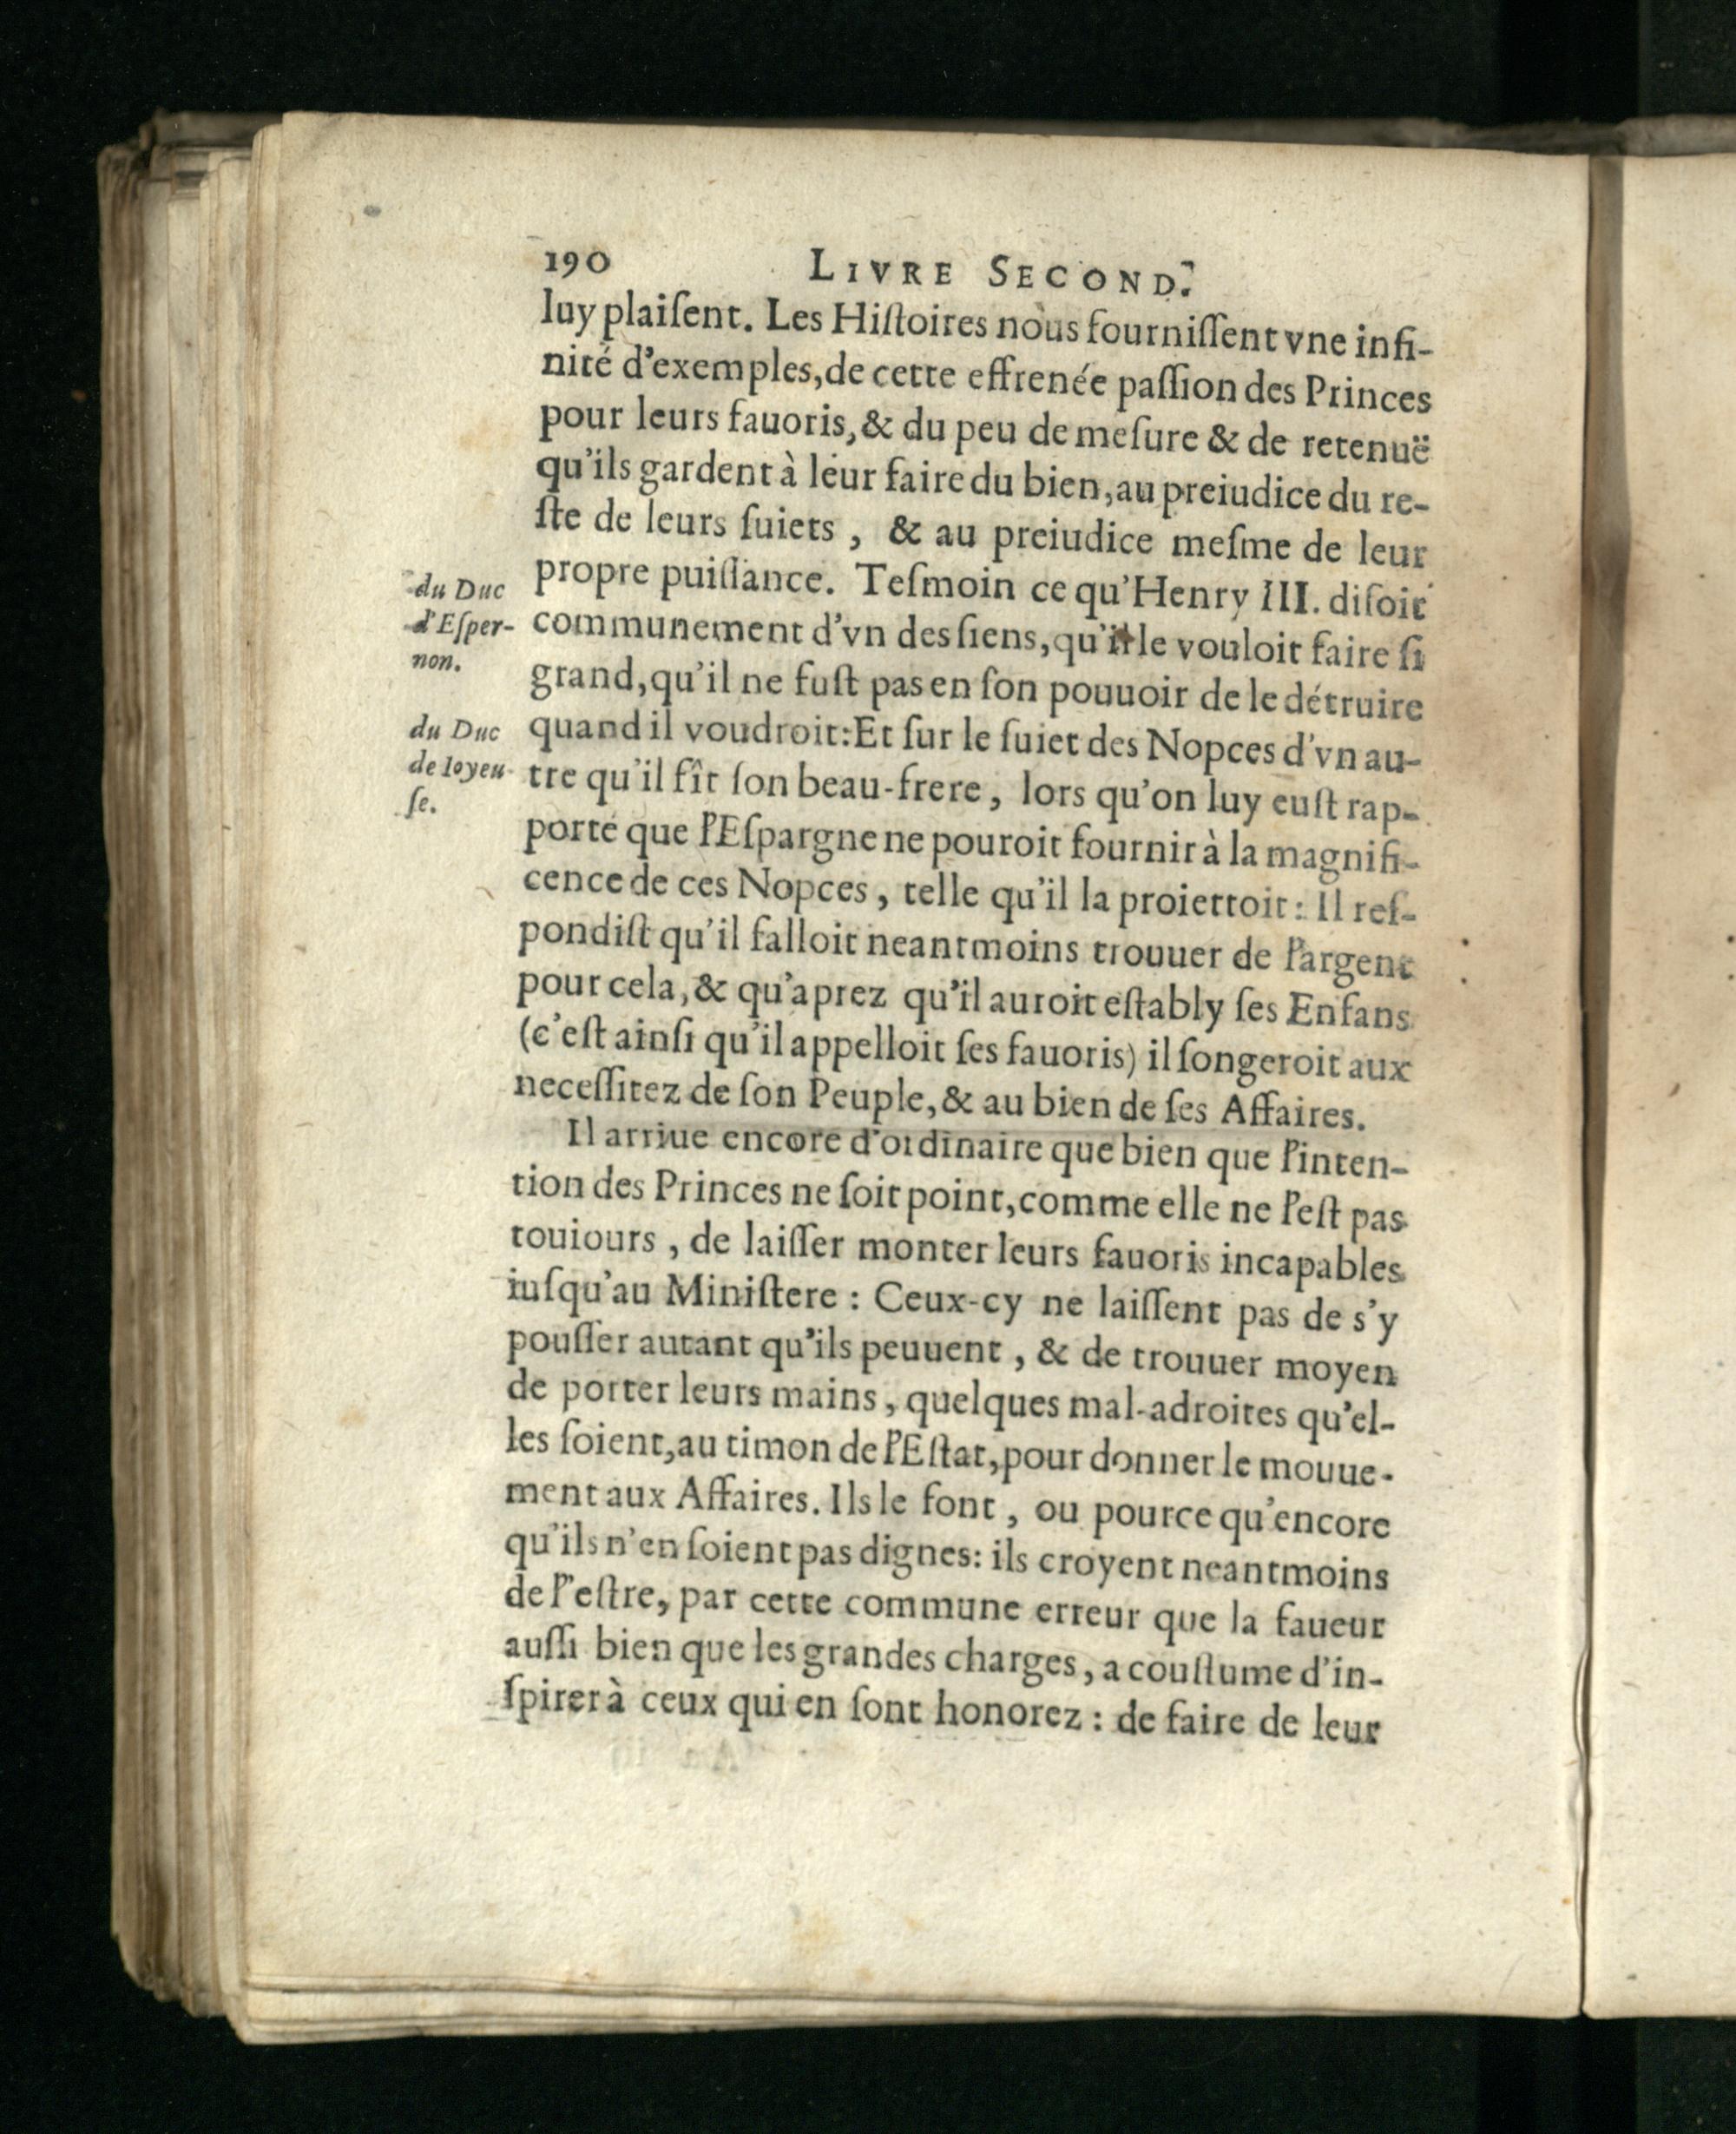 190 LIVRE SECOND.
luy plaiſent. Les Hiſtoires nous fourniſſent vne infi-
nité d'exemples, de cette effrenée paſſion des Princes
pour leurs fauoris, & du peu de meſure & de retenuë
qu'ils gardent à leur faire du bien, au preiudice du re-
ſte de leurs ſuiets, & au preiudice meſme de leur
propre puiſſance. Teſmoin ce qu'Henry III. diſoit
du Duc
d'Eſper-
non.
communement d'vn des ſiens, qu'il le vouloit faire ſi
grand, qu'il ne fuſt pas en ſon pouuoir de le détruire
quand il voudroit: Et ſur le ſuiet des Nopces d'vn au-
du Duc
de Ioyeu-
ſe.
tre qu'il fît ſon beau-frere, lors qu'on luy euſt rap-
porté que l'Eſpargne ne pouroit fournir à la magnifi-
cence de ces Nopces, telle qu'il la proiettoit: Il reſ-
pondiſt qu'il falloit neantmoins trouuer de l'argent
pour cela, & qu'aprez qu'il auroit eſtably ſes Enfans
(c'eſt ainſi qu'il appelloit ſes fauoris) il ſongeroit aux
neceſſitez de ſon Peuple, & au bien de ſes Affaires.
Il arriue encore d'ordinaire que bien que l'inten-
tion des Princes ne ſoit point, comme elle ne l'eſt pas
touiours, de laiſſer monter leurs fauoris incapables
iuſqu'au Miniſtere: Ceux-cy ne laiſſent pas de s'y
pouſſer autant qu'ils peuuent, & de trouuer moyen
de porter leurs mains, quelques mal-adroites qu'el-
les ſoient, au timon de l'Eſtat, pour donner le mouue-
ment aux Affaires. Ils le font, ou pource qu'encore
qu'ils n'en ſoient pas dignes: ils croyent neantmoins
de l'eſtre, par cette commune erreur que la faueur
auſſi bien que les grandes charges, a couſtume d'in-
ſpirer à ceux qui en ſont honorez: de faire de leur